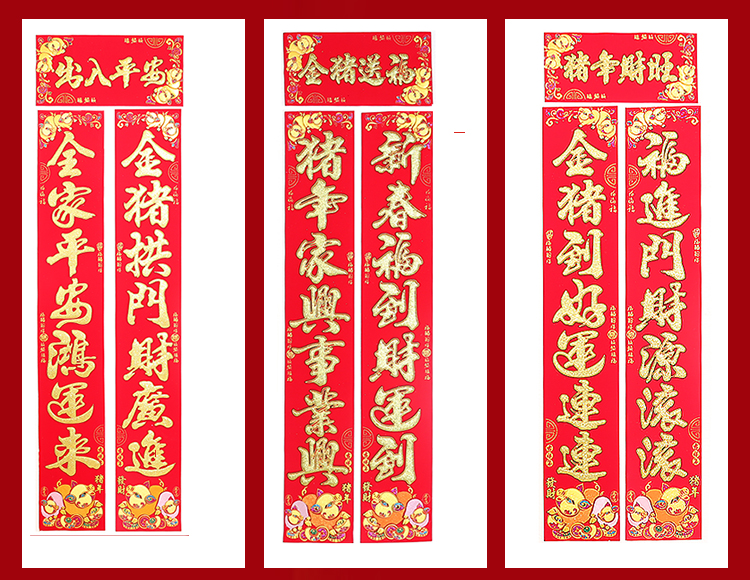 出入平安
金猪拱門財廣進
全家平安鴻運来
猪年
發財
金猪送福
新春福到財運到
猪年家興事業興
猪年
發財
猪年財旺
福進門財源滚滚
金猪到好運連連
猪年
發財